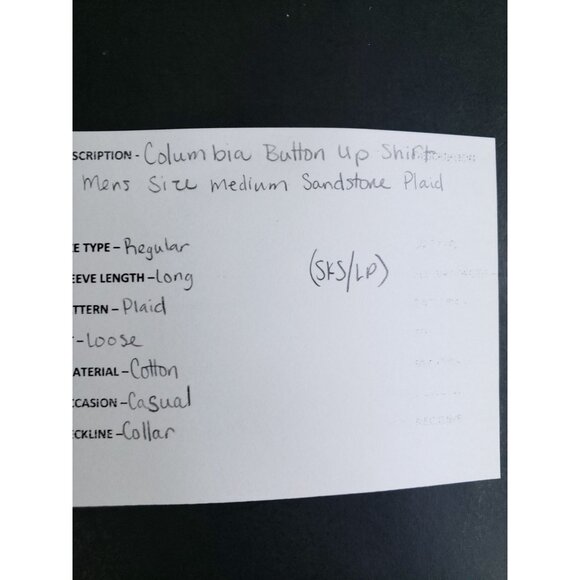 SCRIPTION - Columbia Button Up Shirt
Mens Size Medium Sandstone Plaid
E TYPE - Regular
EEVE LENGTH - Long
(SKS/LP)
TTERN - Plaid
- Loose
ATERIAL - Cotton
CCASION - Casual
ECKLINE - Collar